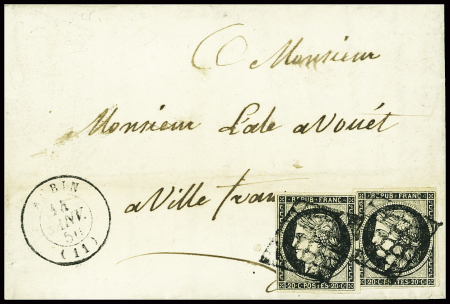 Monsieur
Monsieur Lale avouét
a Ville fran
AUBIN
15
JANV.
50
(11)
REPUB FRANC
20 C POSTES 20 C
REPUB FRANC
20 C POSTES 20 C